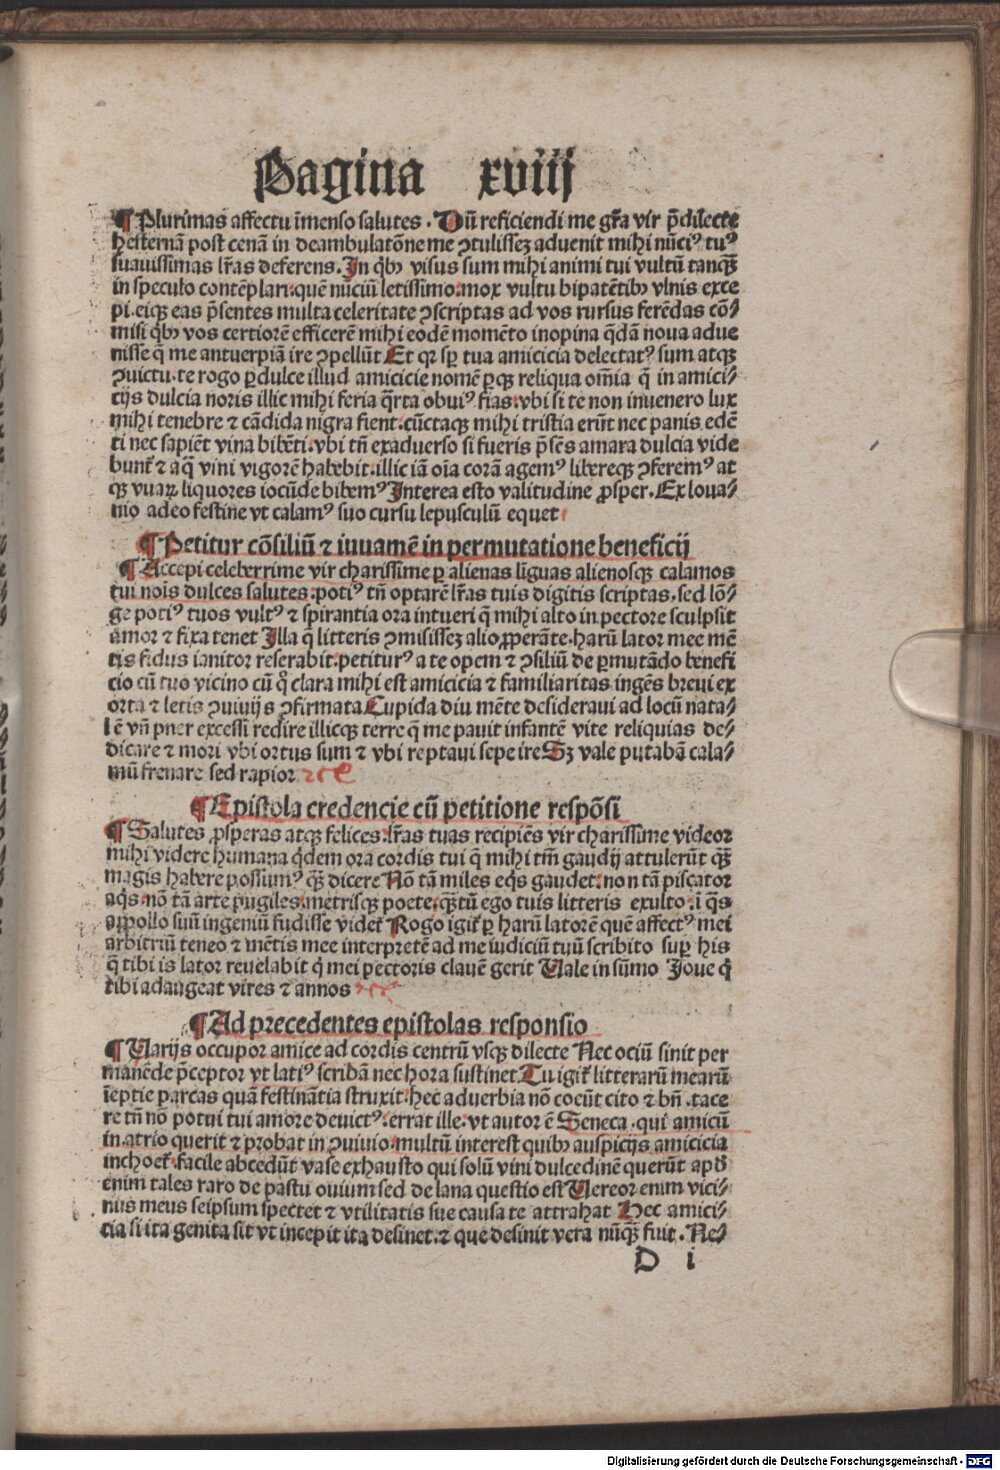 Pagina xviij
¶ Plurimas affectu īmenso salutes . Dū reficiendi me gr̄a vir p̄dilecte
hesternā post cenā in deambulatōne me ꝯtulissez aduenit mihi nūciꝰ tuꝰ
suauissimas lr̄as deferens. In qͥbꝫ visus sum mihi animi tui vultū tanqꝫ̄
in speculo contēplari:quē nūciū letissimo:mox vultu bipatētibꝫ vlnis exce
pi.eiqꝫ eas p̄sentes multa celeritate ꝯscriptas ad vos rursus ferēdas cō⸗
misi qͥbꝫ vos certiorē efficerē mihi eodē momēto inopina q̄dā noua adue
nisse q̄ me antuerpiā ire ꝯpellūt Et qꝛ sp̄ tua amicicia delectatꝰ sum atqꝫ
ꝯuictu.te rogo ꝑdulce illud amicicie nomē ꝑqꝫ reliqua om̄ia q̄ in amici⸗
cijs dulcia noris illic mihi feria q̄rta obuiꝰ fias:vbi si te non inuenero lux
mihi tenebre ⁊ cādida nigra fient:cūctaqꝫ mihi tristia erūt nec panis edē
ti nec sapiēt vina bibēti.vbi tn̄ exaduerso si fueris p̄sēs amara dulcia vide
bunt̄ ⁊ aq̄ vini vigorē habebit.illic iā oīa corā agemꝰ libereqꝫ ꝯferemꝰ at
qꝫ vuaꝝ liquores iocūde bibemꝰ Interea esto valitudine ꝓsper. Ex loua⸗
nio adeo festine vt calamꝰ suo cursu lepusculū equet
¶ Petitur cōsiliū ⁊ iuuamē in permutatione beneficij
¶ Accepi celeberrime vir charissime ꝑ alienas linguas alienosqꝫ calamos
tui noīs dulces salutes:potiꝰ tn̄ optarē lr̄as tuis digitis scriptas.sed lō⸗
ge potiꝰ tuos vultꝰ ⁊ spirantia ora intueri q̄ mihi alto in pectore sculpsit
amor ⁊ fixa tenet Illa q̄ litteris ꝯmisissez alio ꝓperāte.harū lator mee mē
tis fidus ianitor reserabit:petiturꝰ a te opem ⁊ ꝯsiliū de ꝑmutādo benefi
cio cū tuo vicino cū qͦ clara mihi est amicicia ⁊ familiaritas ingēs breui ex
orta ⁊ letis ꝯuiuijs ꝯfirmata Cupida diu mēte desideraui ad locū nata⸗
lē vn̄ puer excessi redire illicqꝫ terre q̄ me pauit infantē vite reliquias de⸗
dicare ⁊ mori vbi ortus sum ⁊ vbi reptaui sepe ire Sꝫ vale putabā cala⸗
mū frenare sed rapior ⁊cͨ
¶ Epistola credencie cū petitione respōsi
¶ Salutes ꝓsperas atqꝫ felices:lr̄as tuas recipiēs vir charissime videor
mihi videre humana q̄dem ora cordis tui q̄ mihi tm̄ gaudij attulerūt qꝫ̄
magis habere possumꝰ qꝫ̄ dicere Nō tā miles eqͥs gaudet:non tā piscator
aqͥs:nō tā arte pugiles:metrisqꝫ poete:qꝫ̄tū ego tuis litteris exulto:ī qͥs
appollo suū ingeniū fudisse videt̄ Rogo igit̄ ꝑ harū latorē quē affectꝰ mei
arbitriū teneo ⁊ mētis mee interpretē ad me iudiciū tuū scribito suꝑ his
q̄ tibi is lator reuelabit qͥ mei pectoris clauē gerit Vale in sūmo Joue qͥ
tibi adaugeat vires ⁊ annos
¶ Ad precedentes epistolas responsio
¶ Varijs occupor amice ad cordis centrū vsqꝫ dilecte Nec ociū sinit per
manēde p̄ceptor vt latiꝰ scribā nec hora sustinet Tu igit̄ litterarū mearū
īeptie parcas quā festinātia struxit:hec aduerbia nō coeūt cito ⁊ bn̄ .tace
re tn̄ nō potui tui amore deuictꝰ:errat ille.vt autor ē Seneca .qui amicū
in atrio querit ⁊ probat in ꝯuiuio:multū interest quibꝫ auspicijs amicicia
inchoet̄.facile abcedūt vase exhausto qui solū vini dulcedinē querūt apd̄
enim tales raro de pastu ouium sed de lana questio est Vereor enim vici⸗
nus meus seipsum spectet ⁊ vtilitatis sue causa te attrahat Hec amici⸗
cia si ita genita sit vt incepit ita desinet.⁊ que desinit vera nūqꝫ̄ fuit . Ne⸗
D i
Digitalisierung gefördert durch die Deutsche Forschungsgemeinschaft - DFG